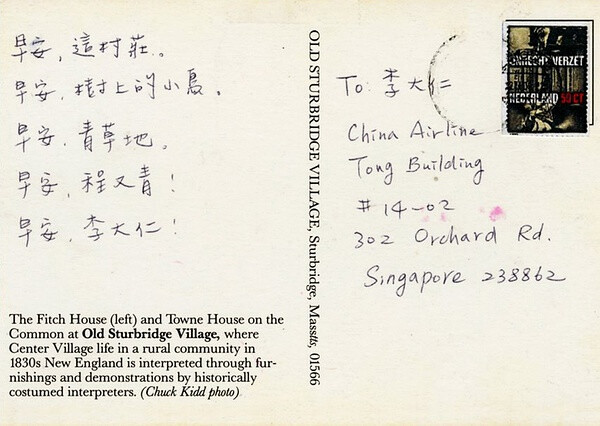 早安，這村莊。
早安，樹上的小鳥。
早安，青草地。
早安，程又青！
早安，李大仁！
The Fitch House (left) and Towne House on the
Common at Old Sturbridge Village, where
Center Village life in a rural community in
1830s New England is interpreted through fur-
nishings and demonstrations by historically
costumed interpreters. (Chuck Kidd photo)
OLD STURBRIDGE VILLAGE, Sturbridge, Masstts, 01566
To: 李大仁
China Airline
Tong Building
# 14-02
302 Orchard Rd.
Singapore 238862
VERZET
NEDERLAND 50 CT